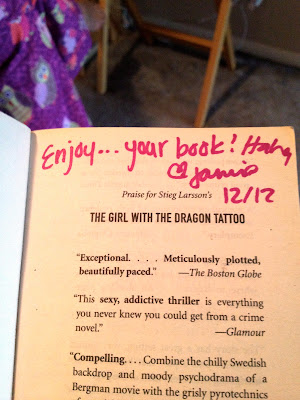 Enjoy... your book! Haha
Jamie
12/12
Praise for Stieg Larsson's
THE GIRL WITH THE DRAGON TATTOO
"Exceptional. . . . Meticulously plotted,
beautifully paced." —The Boston Globe
"This sexy, addictive thriller is everything
you never knew you could get from a crime
novel." —Glamour
"Compelling. . . . Combine the chilly Swedish
backdrop and moody psychodrama of a
Bergman movie with the grisly pyrotechnics